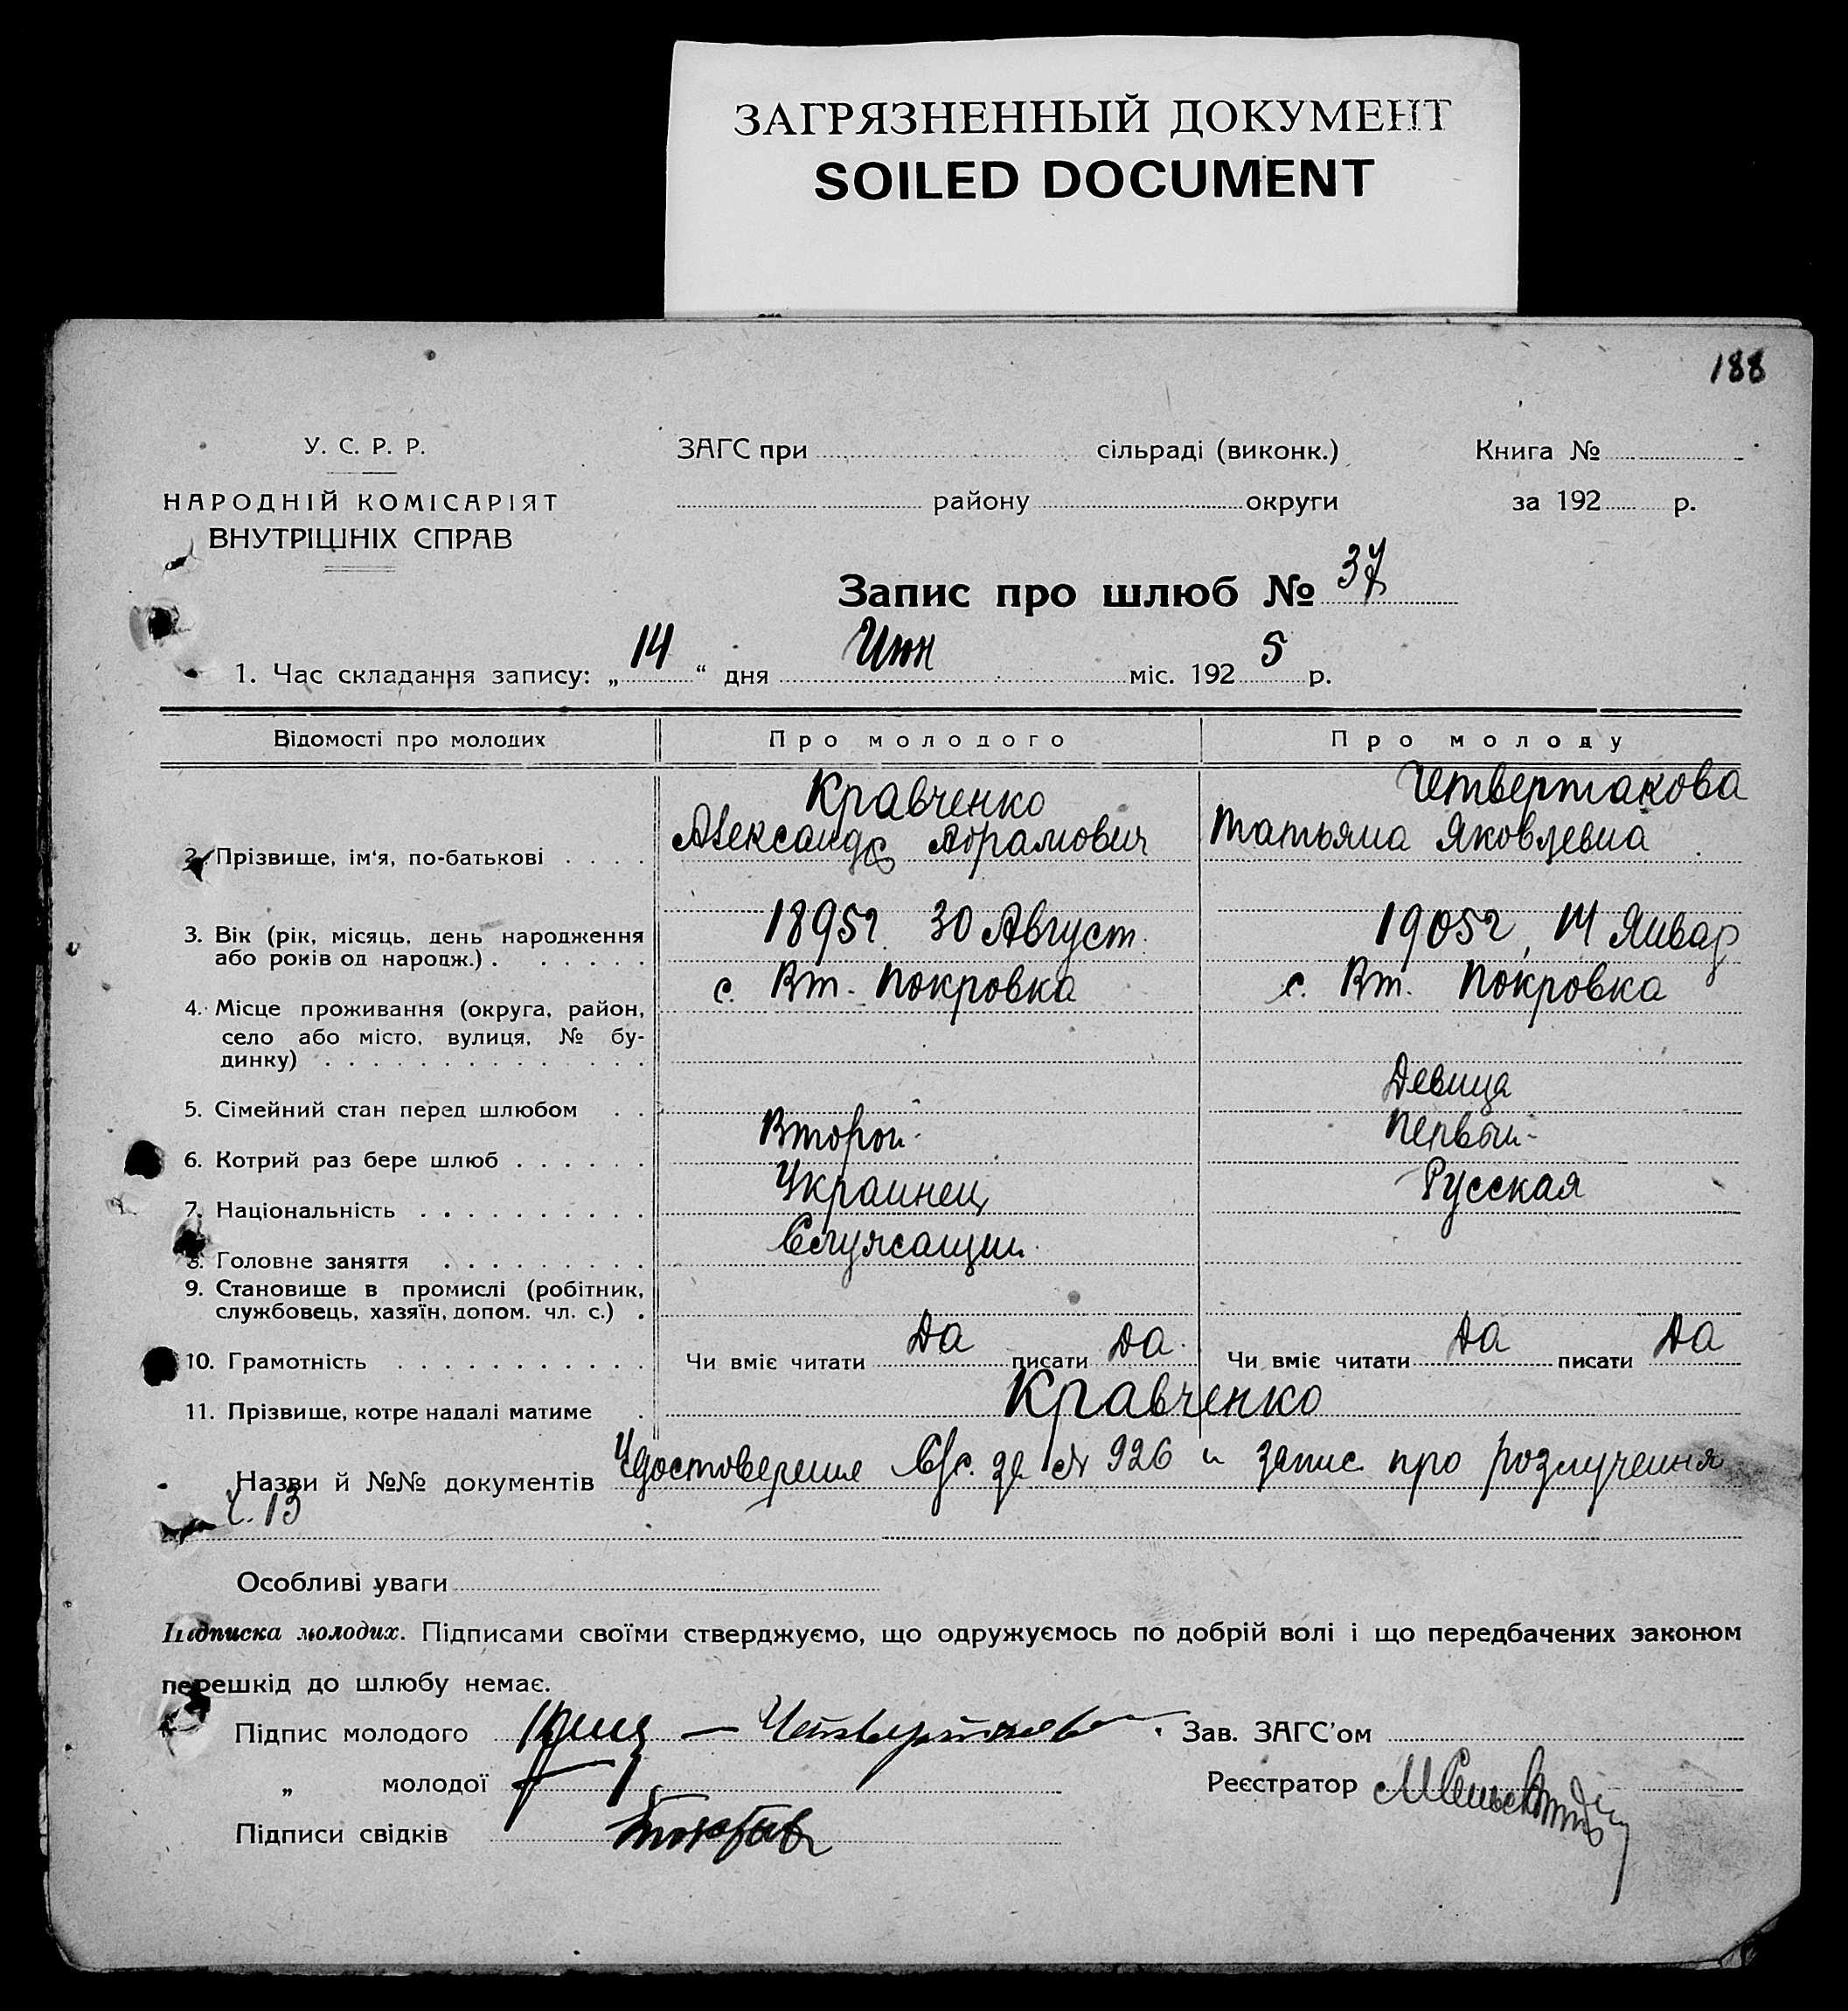 ЗАГРЯЗНЕННЫЙ ДОКУМЕНТ
SOILED DOCUMENT
188
У. С. Р. Р.
НАРОДНІЙ КОМІСАРІЯТ
ВНУТРІШНІХ СПРАВ
ЗАГС при сільраді (виконк.)
району округи
Книга №
за 192 р.
Запис про шлюб № 37
1. Час складання запису: „14“ дня Июн міс. 1925 р.
Відомості про молодих Про молодого Про молоду
Кравченко Четвертакова
2. Прізвище, ім'я, по-батькові . . . . Александр Абрамович Татьяна Яковлевна
3. Вік (рік, місяць, день народження 1895г. 30 Август. 1905г, 14 Январ
або років од народж.) . . . . . .
4. Місце проживання (округа, район, с. Вт. Покровка с. Вт. Покровка
село або місто, вулиця, № бу-
динку) . . . . . . . . . . . . . .
5. Сімейний стан перед шлюбом . . Девица
6. Котрий раз бере шлюб . . . . . . Второй Первый
7. Національність . . . . . . . . . . Украинец Русская
8. Головне заняття . . . . . . . . . Служащий
9. Становище в промислі (робітник,
службовець, хазяїн, допом. чл. с.) .
10. Грамотність . . . . . . . . . . . Чи вміє читати Да писати Да Чи вміє читати Да писати Да
11. Прізвище, котре надалі матиме . Кравченко
Назви й №№ документів Удостоверение за № 926 и запис про розлучення
ч. 13
Особливі уваги
Підписка молодих. Підписами своїми стверджуємо, що одружуємось по добрій волі і що передбачених законом
перешкід до шлюбу немає.
Підпис молодого Зав. ЗАГС'ом
„ молодої Реєстратор
Підписи свідків